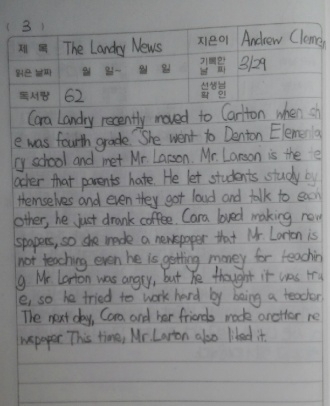 ( 3 )
제 목 The Landry News 지은이 Andrew Clemen
읽은 날짜 월 일~ 월 일 기록한 날짜 3/29
독서량 62 선생님 확인
Cara Landry recently moved to Carlton when sh
e was fourth grade. She went to Denton Elementa
ry school and met Mr. Larson. Mr. Larson is the te
acher that parents hate. He let students study by
themselves and even they got loud and talk to each
other, he just drank coffee. Cara loved making new
spapers, so she made a newspaper that Mr. Larton is
not teaching even he is getting money for teachin
g. Mr. Larton was angry, but he thought it was tru
e, so he tried to work hard by being a teacher.
The next day, Cara and her friends made another ne
wspaper. This time, Mr. Larton also liked it.